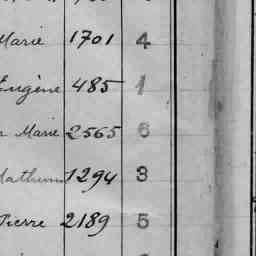 Marie 1701 4
Eugène 485 1
Marie 2565 6
1294 3
Pierre 2189 5